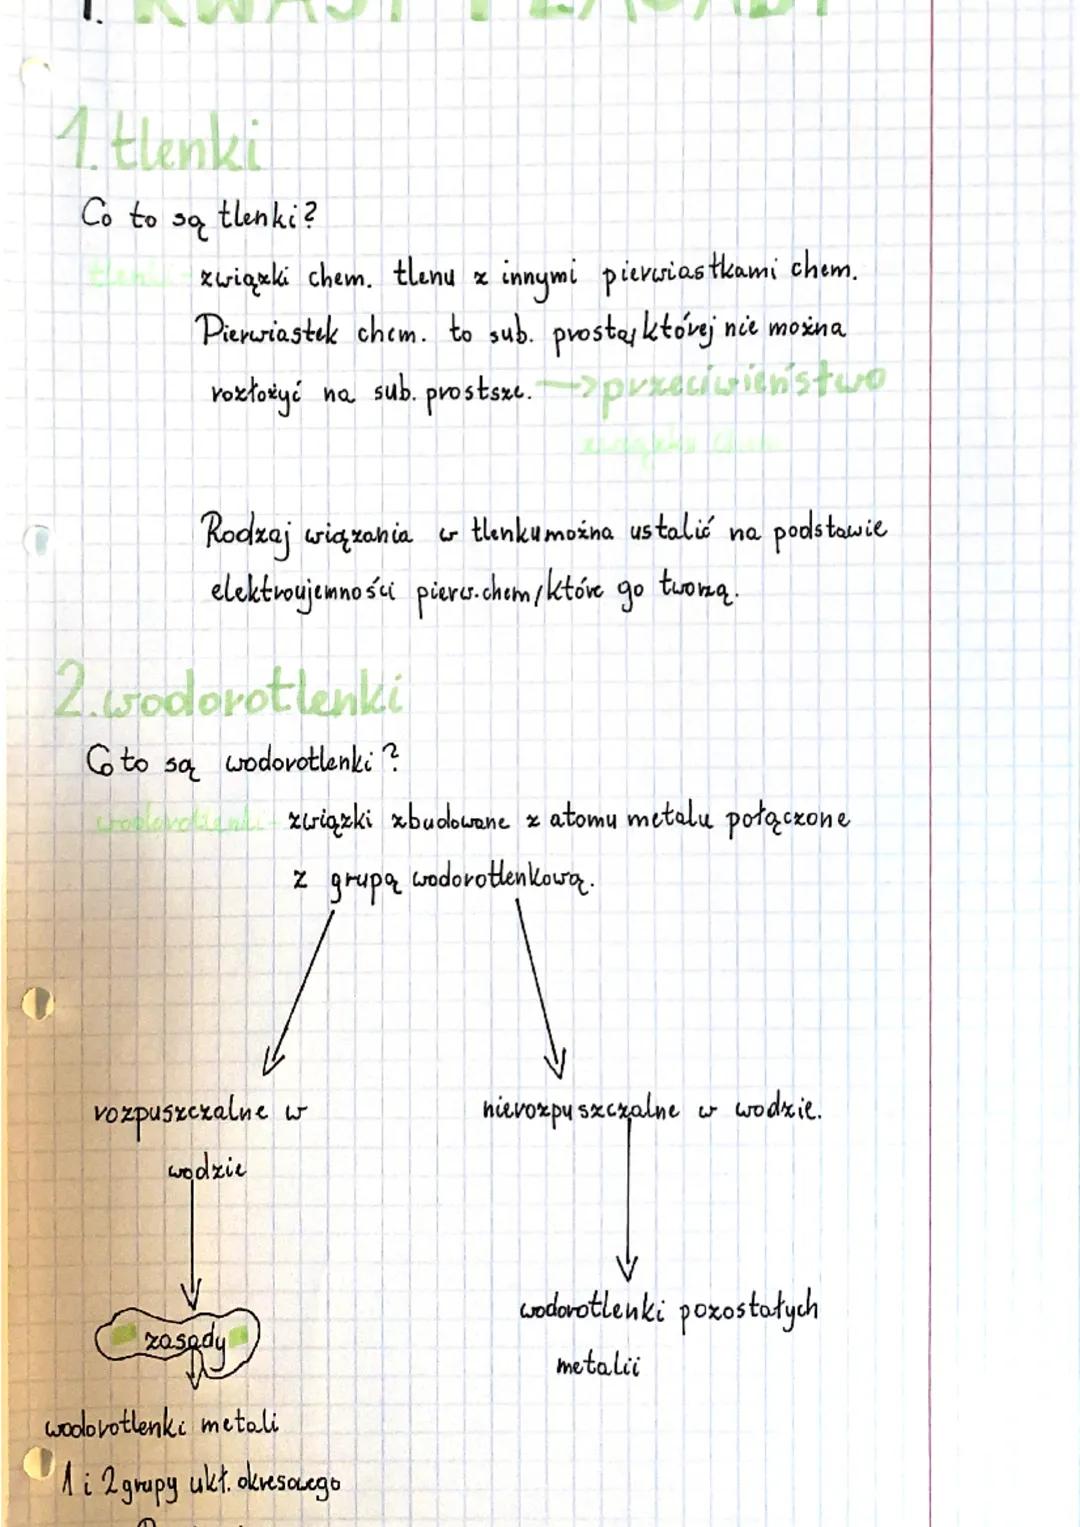 1. KWASY I ZASADY
1. tlenki
Co to są tlenki?
tlenki - związki chem. tlenu z innymi pierwiastkami chem.
Pierwiastek chem. to sub. prosta, której nie można
rozłożyć na sub. prostsze. → przeciwieństwo
związku chem
Rodzaj wiązania w tlenku można ustalić na podstawie
elektroujemności pierw. chem, które go tworzą.
2. wodorotlenki
Co to są wodorotlenki?
wodorotlenki - związki zbudowane z atomu metalu połączone
z grupą wodorotlenkową.
rozpuszczalne w nierozpuszczalne w wodzie.
wodzie
zasady wodorotlenki pozostałych
metalii
wodorotlenki metali
1 i 2 grupy ukł. okresowego